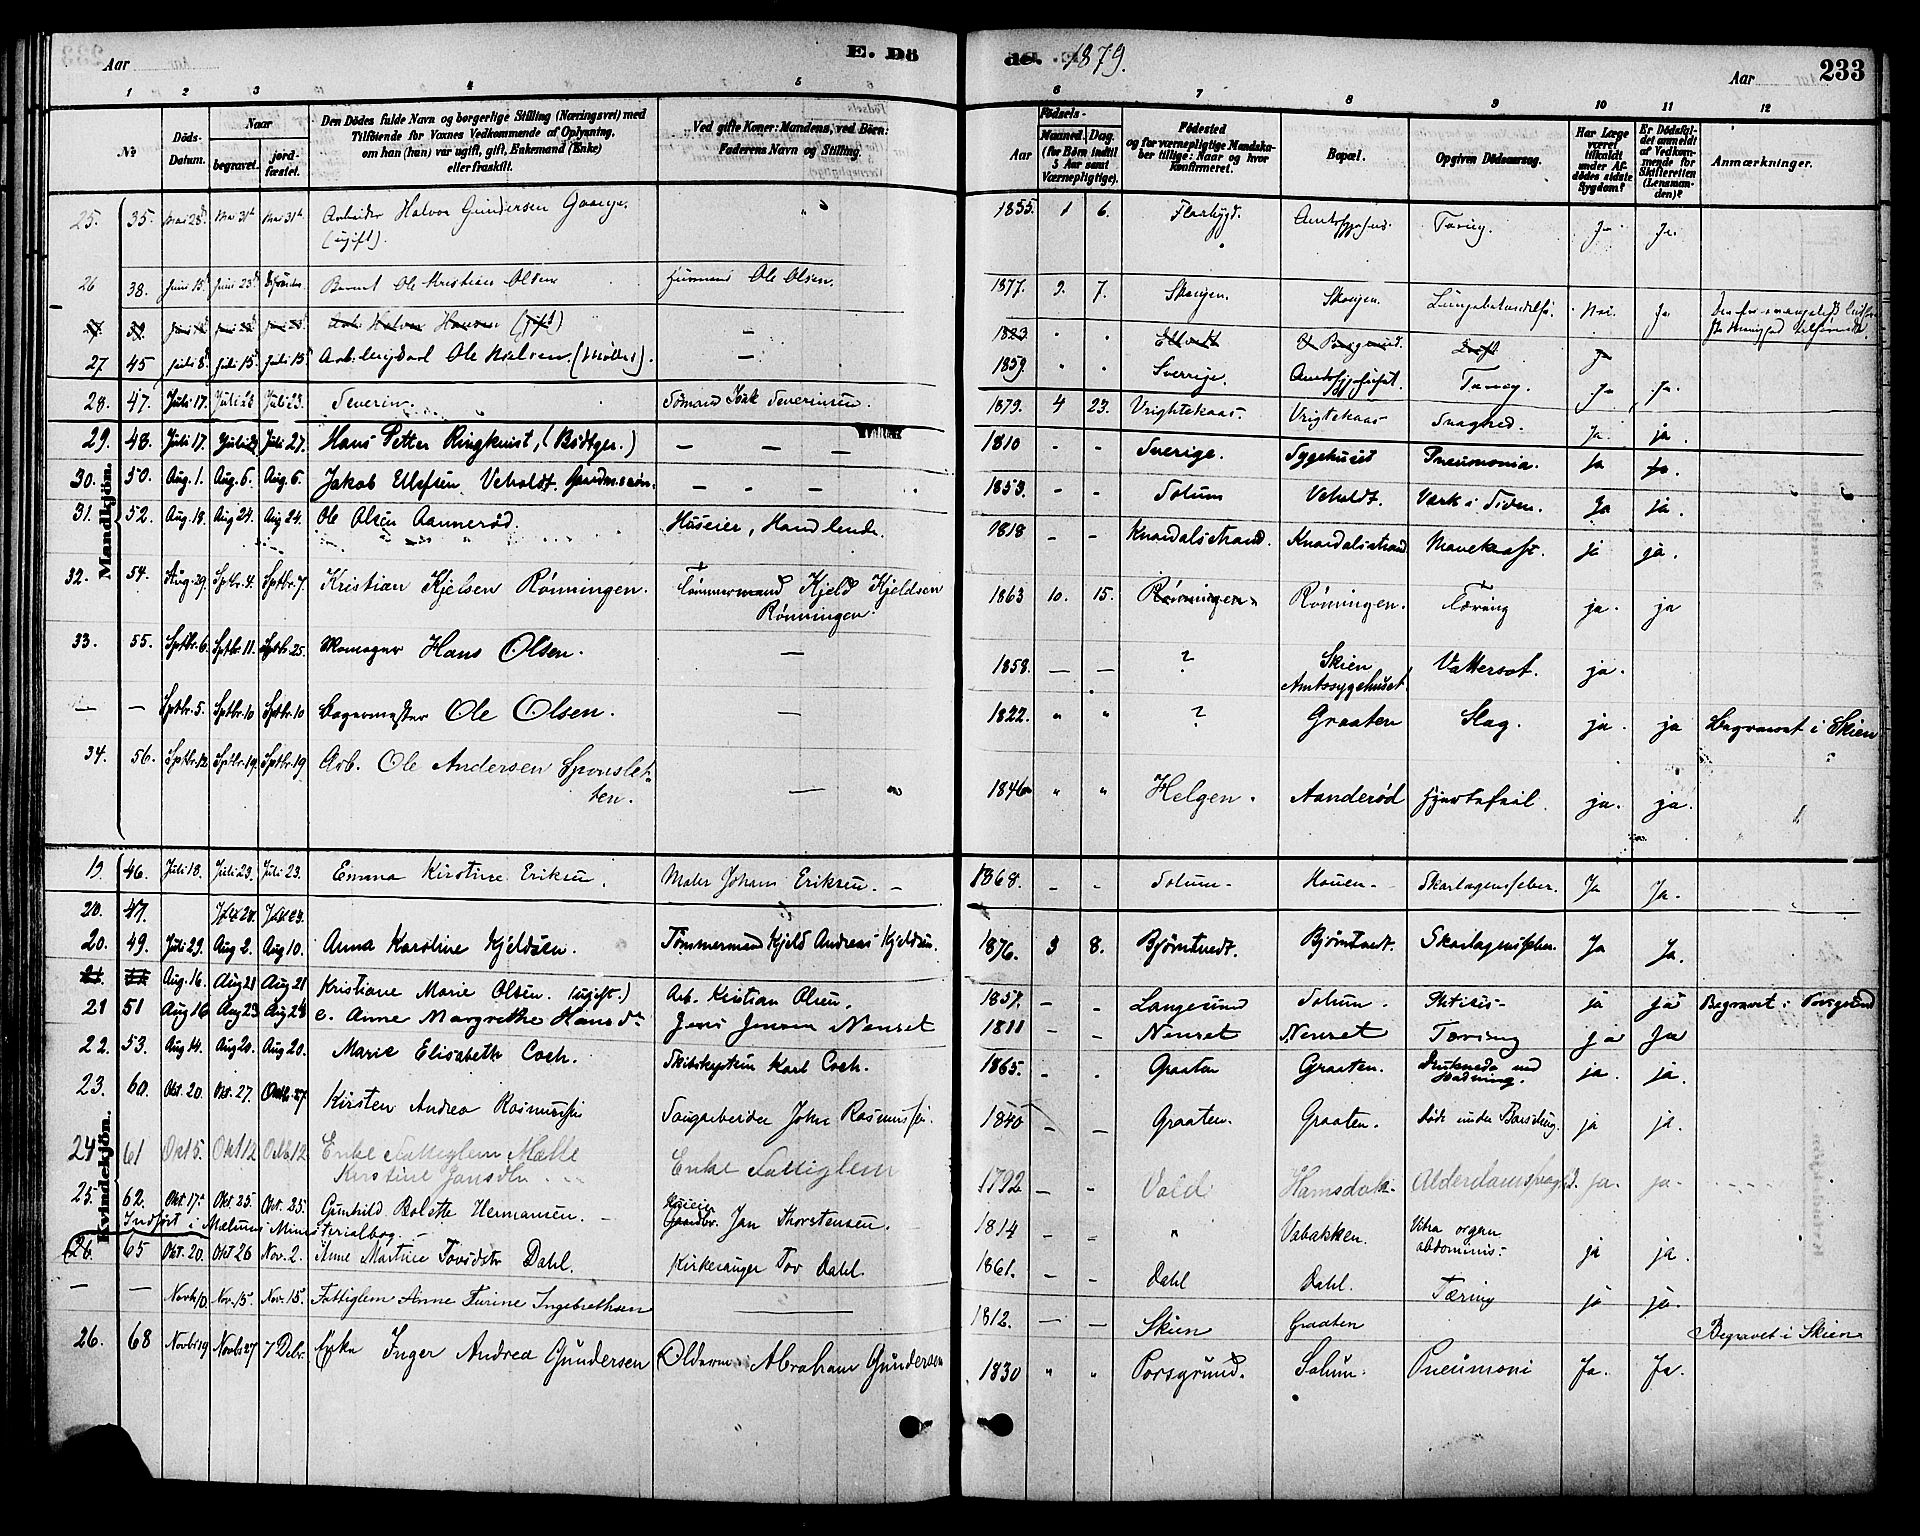 Aar
E. Dö
de. 1879.
Aar
233
1 2 3 4 5 6 7 8 9 10 11 12
No
Döds-Datum.
Naar
begravet.
jordfæstet.
Den Dödes fulde Navn og borgerlige Stilling (Næringsvei) med
Tilföiende for Voxnes Vedkommende af Oplysning,
om han (hun) var ugift, gift, Enkemand (Enke)
eller fraskilt.
Ved gifte Koner: Mandens, ved Börn:
Faderens Navn og Stilling.
Födsels-
Aar
Maaned. Dag.
(for Börn indtil
5 Aar samt
Værnepligtige).
Födested
og for værnepligtige Mandska-
ber tillige: Naar og hvor
Konfirmeret.
Bopæl.
Opgiven Dödsaarsag.
Har Læge
været
tilkaldt
under Af-
dödes sidste
Sygdom?
Er Dödsfal-
det anmeldt
af Vedkom-
mende for
Skifteretten
(Lensman-
den)?
Anmærkninger.
Mandkjön.
25. 35. Mai 28d Mai 31te Mai 31te Arbeider Halvor Gundersen (ugift). 1855. 1 6. Tæring. Ja. Ja.
26 38. Juni 15d Juni 23d Barnet Ole Kristian Olsen Husmand Ole Olsen. 1877. 9. 7. Skougen. Skougen. Nei. Ja
39. Arb. Halvor Hansen (gift) — 1823 Ja
27 45 Juli 8d Juli 15d Juli 15d Ole Nielsen — 1859. Sverrige. Tæring. Ja Ja.
28. 47. Juli 17. Juli 23 Juli 23. Severin. Sömand Isak Severinsen. 1879. 4 23. Vrightekaas. Vrigtekaas Svaghed. Ja. ja.
29. 48. Juli 17 Juli 27. Hans Petter Ringkvist, (Bödtger.) — — — 1810 — - Sverige. Sygehuset Pneumonia. ja ja.
30. 50. Aug. 1. Aug. 6. Aug. 6. Jakob Ellefsen Veholdt. Gaardm.sön. — — — 1853. - - Solum Veholdt. Værk i Siden. Ja ja.
31. 52. Aug. 18. Aug 24. Aug 24. Ole Olsen Aannerød. Huseier, Handlende. 1818 — — Knardalsstrand. Knardalsstrand Mavekræft. ja ja.
32. 54. Aug. 29. Sptbr. 4. Sptbr. 7. Kristian Kjelsen Rønningen. Tømmermand Kjeld Kjeldsen
Rønningen. 1863 10. 15. Rønningen. Rønningen. Tæring ja. ja
33. 55. Sptbr. 6. Sptbr. 11. Sptbr. 25. Skomager Hans Olsen. — 1858. — — ? Skien
Amtssygehuset Vattersot. ja.
— — Sptbr. 5. Sptbr. 10 Sptbr. 10 Ole Olsen. — 1822. " " ? Graaten Slag. ja. ja Begravet i Skien
34. 56. Sptbr. 12. Sptbr. 19. Sptbr. 19 Arb. Ole Andersen Sponslet-
ten. — " 1846. " " Helgen. Aanderød Hjertefeil. ja. ja.
Kvindekjön.
19. 46. Juli 18. Juli 23. Juli 23. Emma Kirstine Eriksen. Maler Johan Eriksen. - 1868. - - Solum - Houen - Skarlagensfeber. Ja Ja.
20. 47.
20. 49. Juli 29. Aug 2. Aug 10. Anna Karoline Kjeldsen. Tømmermand Kjeld Andreas Kjeldsen. 1876. 3 8. Bjørntvedt. Bjørntvedt. Ja Ja.
Aug. 16. Aug 21 Aug 21 Kristiane Marie Olsen. (ugift.) Arb. Kristian Olsen. 1857. - - Langesund Solum. Phtisis - ja ja Begravet i Porsgrund
21 51 Aug 16 Aug 23 Aug 24 e. Anne Margrethe Hansdr Jens Jensen Nenset 1811 - - Nenset Nenset Tæring Ja Ja
22. 53. Aug 14. Aug 20. Aug 20. Marie Elisabeth Coch. Skibskaptein Karl Coch. 1865. - - Graaten Graaten. Druknede ved
Badning. ja. ja.
23. 60. Okt. 20. Okt. 27. Okt. 27 Kirsten Andrea Rasmussen Saugarbeider John Rasmussen. 1840 — — Graaten. Graaten. Døde under Barselseng. ja ja.
24 61 Okt 5. Okt 12 Oktb. 12 Enke Fattiglem Mette
Kirstine Jansdtr Enke Fattiglem 1792 - - Vold Alderdomssvaghed. ja. ja.
25. 62. Okt. 17. Okt. 25. Okt. 25. Gunhild Bolette Hermansen. — Huseier
Jan Thorstensen. 1814 - - " Vabakken. Vitia organ
abdominis. ja ja -
Indført i Mælums Ministerialbog. —
(26. 65 Okt. 20 Okt 26 Nov. 2. Anne Martine Tovsdtr Dahl. Kirkesanger Tov Dahl. 1861. - - Dahl Dahl. Tæring ja ja.
— — Novb. 10. Nov. 15. Nov. 15. Fattiglem Anne Turine Ingebrethsen — 1812. — — Skien Graaten Begravet i Skien
26. 68 Novb. 19 Novb. 27 7 Debr. Enke Inger Andrea Gundersen Abraham Gundersen 1830 " " Porsgrund. Solum. Pneumoni Ja. Ja.